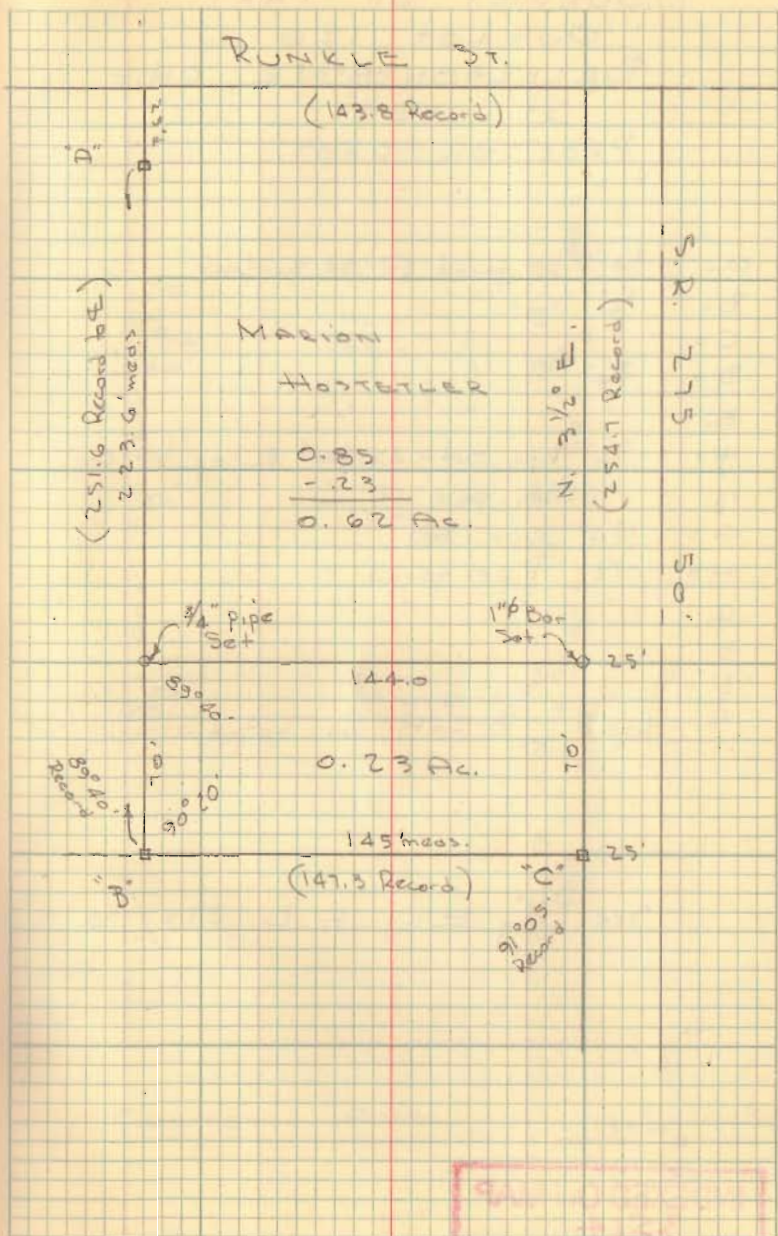 RUNKLE ST.
(143.8 Record)
"D"
7.52
(251.6 Record to ℄)
223.6' meas
MARION
HOSTETLER
0.85
- .23
0.62 Ac.
N. 3 1/2° E.
(254.7 Record)
S.R. 275 50'
3/4" pipe
Set
1"ϕ Bar
Set
25'
144.0
70'
0.23 Ac.
70'
90° 20'
Record
145' meas.
25'
(147.3 Record)
"B"
"C"
91° 05'
Record